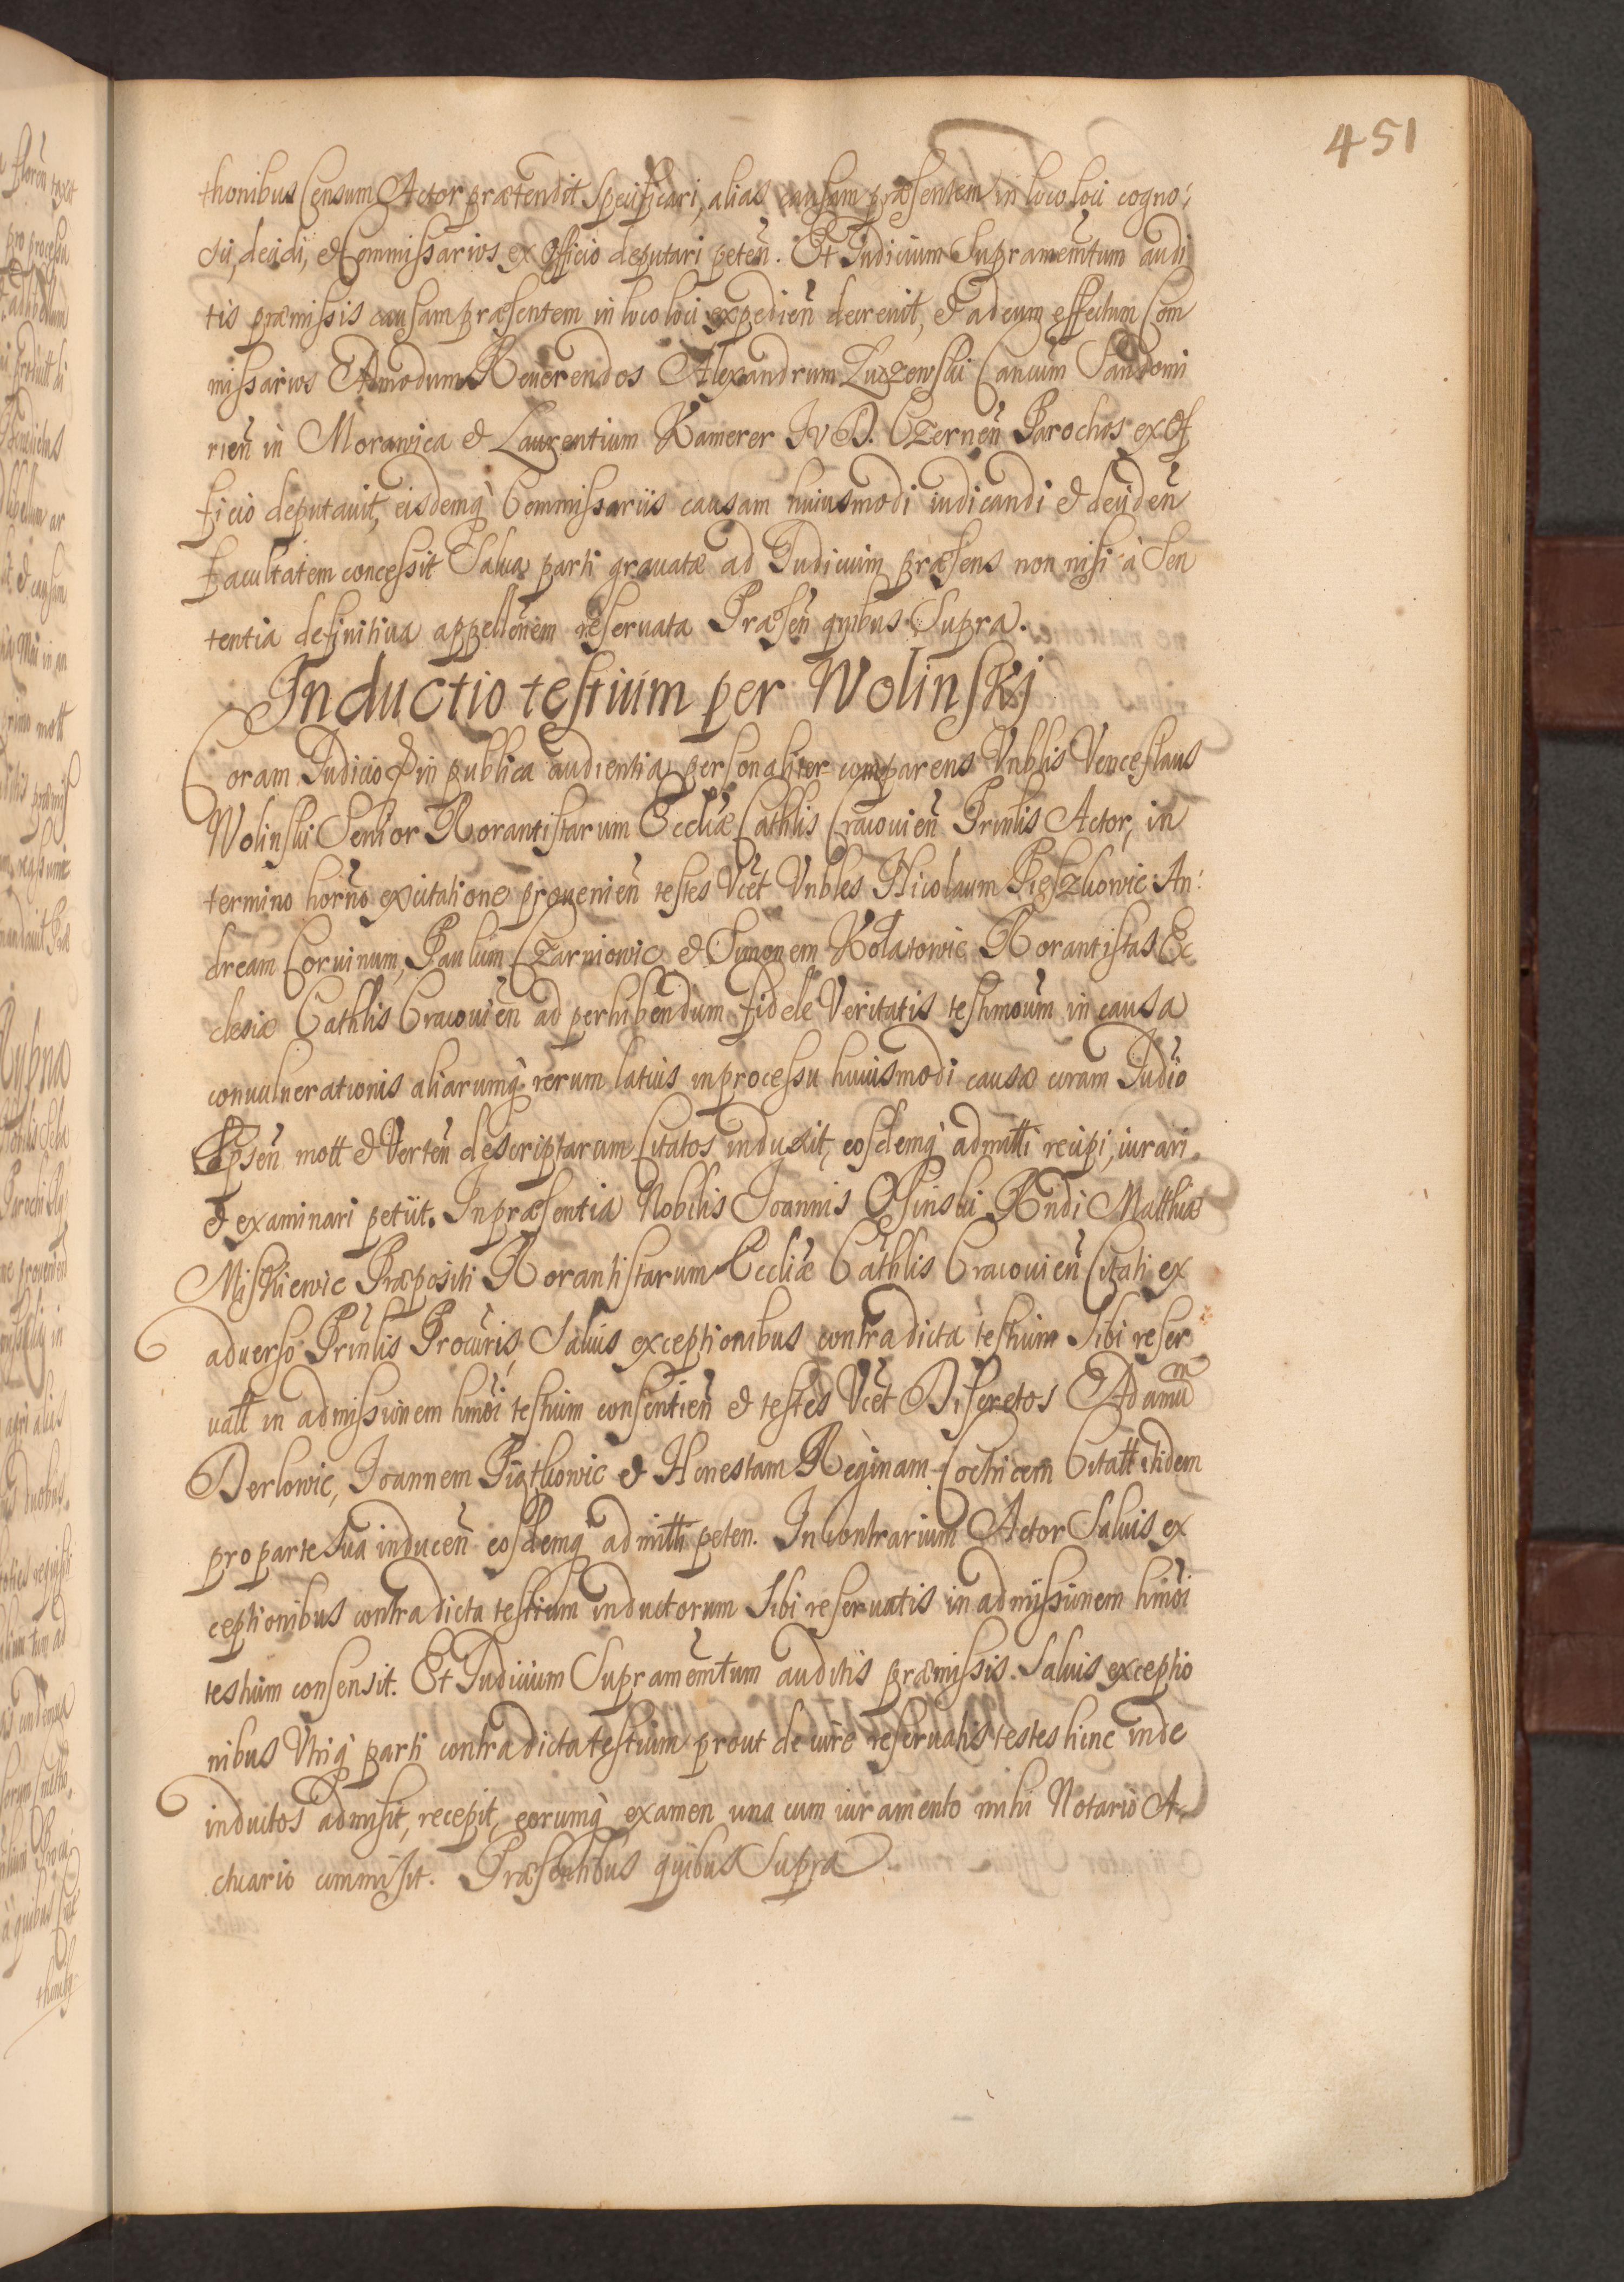 451
thonibus Censum Actor prætendit specificari, alias causam præsentem in loco loci cogno-
sci, decidi, et Commissarios ex officio deputari peteñ. Et Iudicium Supramemtum audi
tis præmissis causam præsentem in loco loci expedieñ decrevit, et ad eum effectum Com
missarios Admodum Reverendos Alexandrum Luczewski Cancum Sandomi
rieñ in Morawica et Laurentium Kamerer I V D. Czerneñ Parochos ex Of
ficio deputavit, eisdemq̀ Commissariis causam huiusmodi iudicandi et decideñ
facultatem concessit Salva parti gravatæ ad Iudicium præsens non nisi à Sen
tentia definitiva appellõnem reservata Præseñ quibus Supra.
Inductio testium per Wolinskj
Coram Iudicio et in publica audientia personaliter comparens Vnblis Venceslaus
Wolinski Senior Rorantistarum Eccliæ Cathlis Cracovieñ Prinlis Actor, in
termino horño ex citatione provenieñ testes Vcet Vnbles Nicolaum Pieszkowic An-
dream Corvinum, Paulum Czarniowic et Simonem Kolatowic Rorantistas Ec
clesiæ Cathlis Cracovieñ ad perhibendum fidele Veritatis testimoum in causa
convulnerationis aliarumq̀ rerum latius in processu huiusmodi causæ coram Iudio
Ppseñ mott et Verteñ descriptarum Citatos induxit, eosdemq̀ admitti recipi, iurari
et examinari petiit. In præsentia Nobilis Ioannis Osinski Rndi Matthiæ
Miskiewic Præpositi Rorantistarum Eccliæ Cathlis Cracovieñ Citati ex
adverso Prinlis Procuris, Salvis exceptionibus contra dicta testium Sibi reser
vatt in admissionem hmõi testium consentieñ et testes Vcet Discretos Adamum
Derlowic, Ioannem Piątkowic et Honestam Reginam Coctricem Citatt itidem
pro parte Sua induceñ eosdemq̀ admitti peten. In contrarium Actor Salvis ex
ceptionibus contra dicta testium inductorum Sibi reservatis in admissionem hmõi
testium consensit. Et Iudicium Supramemtum auditis præmissis. Salvis exceptio
nibus Vtriq̀ parti contra dicta testium prout de iure reservatis testes hinc inde
inductos admisit, recepit, eorumq̀ examen una cum iuramento mihi Notario A-
ctuario commisit. Præsentibus quibus Supra.